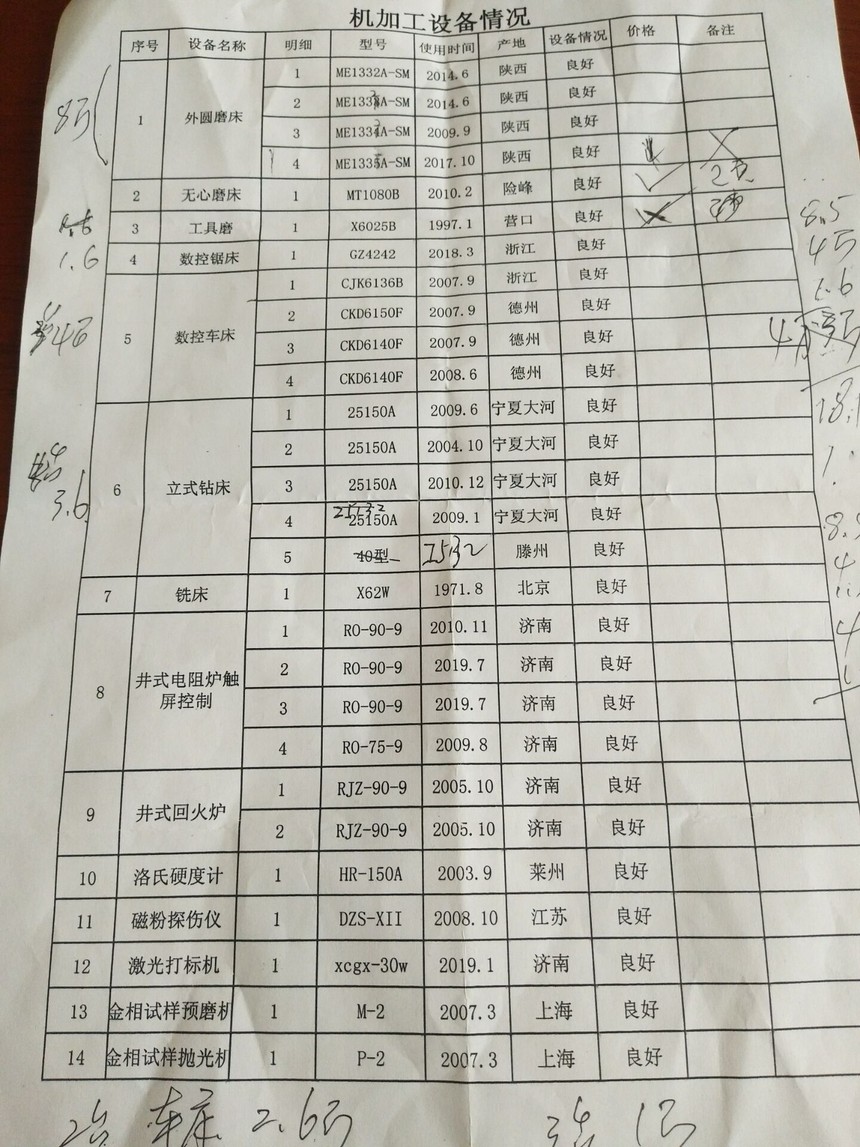 机加工设备情况
序号 设备名称 明细 型号 使用时间 产地 设备情况 价格 备注
1 外圆磨床 1 ME1332A-SM 2014.6 陕西 良好
2 2014.6 陕西 良好
3 2009.9 陕西 良好
4 ME1335A-SM 2017.10 陕西 良好
2 无心磨床 1 MT1080B 2010.2 险峰 良好
3 工具磨 1 X6025B 1997.1 营口 良好
4 数控锯床 1 GZ4242 2018.3 浙江 良好
5 数控车床 1 CJK6136B 2007.9 浙江 良好
2 CKD6150F 2007.9 德州 良好
3 CKD6140F 2007.9 德州 良好
4 CKD6140F 2008.6 德州 良好
6 立式钻床 1 25150A 2009.6 宁夏大河 良好
2 25150A 2004.10 宁夏大河 良好
3 25150A 2010.12 宁夏大河 良好
4 25150A 2009.1 宁夏大河 良好
5 40型 Z532 滕州 良好
7 铣床 1 X62W 1971.8 北京 良好
8 井式电阻炉触屏控制 1 RO-90-9 2010.11 济南 良好
2 RO-90-9 2019.7 济南 良好
3 RO-90-9 2019.7 济南 良好
4 RO-75-9 2009.8 济南 良好
9 井式回火炉 1 RJZ-90-9 2005.10 济南 良好
2 RJZ-90-9 2005.10 济南 良好
10 洛氏硬度计 1 HR-150A 2003.9 莱州 良好
11 磁粉探伤仪 1 DZS-XII 2008.10 江苏 良好
12 激光打标机 1 xcgx-30w 2019.1 济南 良好
13 金相试样预磨机 1 M-2 2007.3 上海 良好
14 金相试样抛光机 1 P-2 2007.3 上海 良好
8万
1.6
4万
3.6
8.5
4万
1.6
车床 2.6万
1万